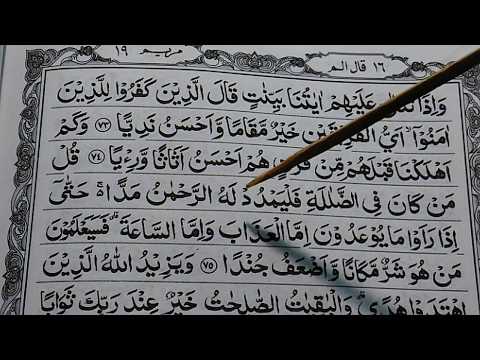 ١٦ قال الم
مريم ١٩
وَاِذَا تُتْلٰى عَلَيْهِمْ اٰيٰتُنَا بَيِّنٰتٍ قَالَ الَّذِيْنَ كَفَرُوْا لِلَّذِيْنَ
اٰمَنُوْٓا اَيُّ الْفَرِيْقَيْنِ خَيْرٌ مَّقَامًا وَّاَحْسَنُ نَدِيًّا ﴿٧٣﴾ وَكَمْ
اَهْلَكْنَا قَبْلَهُمْ مِّنْ قَرْنٍ هُمْ اَحْسَنُ اَثَاثًا وَّرِءْيًا ﴿٧٤﴾ قُلْ
مَنْ كَانَ فِى الضَّلٰلَةِ فَلْيَمْدُدْ لَهُ الرَّحْمٰنُ مَدًّا ۚ حَتّٰٓى
اِذَا رَاَوْا مَا يُوْعَدُوْنَ اِمَّا الْعَذَابَ وَاِمَّا السَّاعَةَ ۗ فَسَيَعْلَمُوْنَ
مَنْ هُوَ شَرٌّ مَّكَانًا وَّاَضْعَفُ جُنْدًا ﴿٧٥﴾ وَيَزِيْدُ اللّٰهُ الَّذِيْنَ
اهْتَدَوْا هُدًى ۗ وَالْبٰقِيٰتُ الصّٰلِحٰتُ خَيْرٌ عِنْدَ رَبِّكَ ثَوَابًا